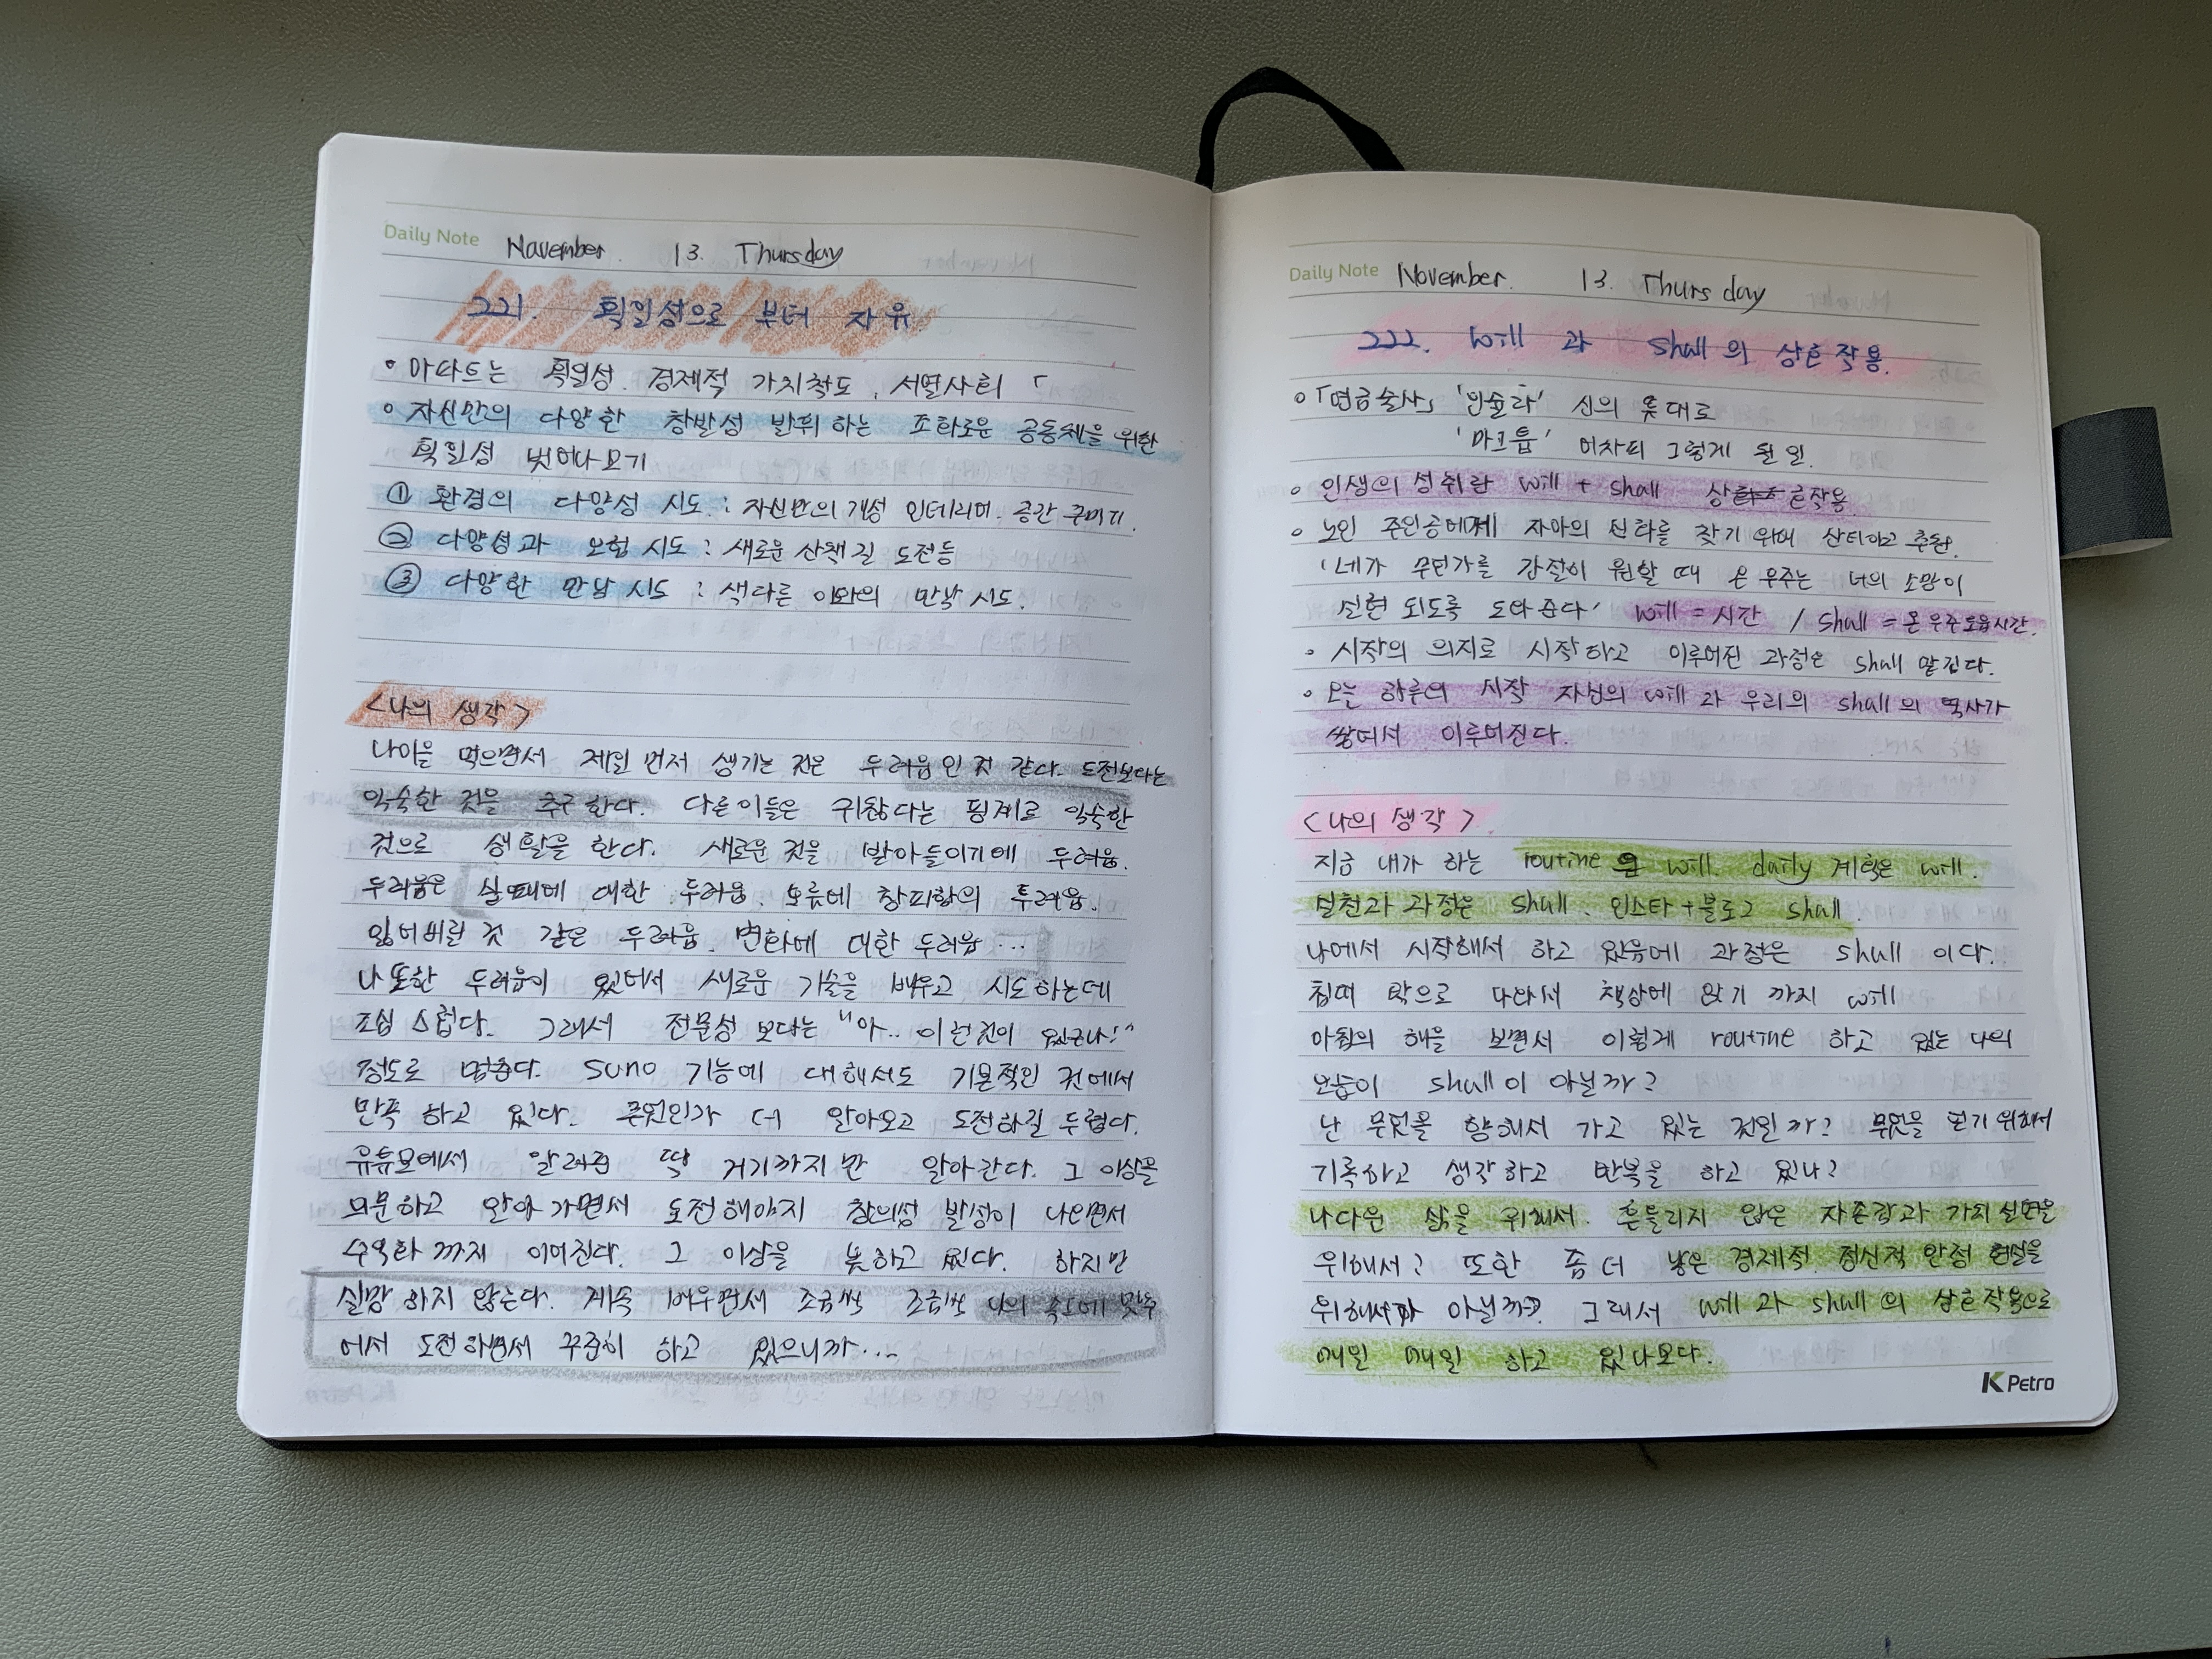 Daily Note November. 13. Thursday
221.획일성으로 부터 자유
• 아파트는 획일성. 경제적 가치척도, 서열사회 「
• 자신만의 다양한 창발성 발휘하는 조화로운 공동체을 위한
획일성 벗어나보기
① 환경의 다양성 시도 : 자신만의 개성 인테리어. 공간 꾸미기.
② 다양성과 모험 시도 : 새로운 산책길 도전등
③ 다양한 만남 시도 : 색다른 이와의 만남 시도.
<나의 생각>
나이을 먹으면서 제일 먼저 생기는 것은 두려움인 것 같다. 도전보다는
익숙한 것을 추구한다. 다른이들은 귀찮다는 핑계로 익숙한
것으로 생활을 한다. 새로운 것을 받아들이기에 두려움.
두려움은 실패에 대한 두려움. 오류에 창피함의 두려움.
잃어버릴 것 같은 두려움. 변화에 대한 두려움 ...
나 또한 두려움이 있어서 새로운 기술을 배우고 시도하는데
조심 스럽다. 그래서 전문성 보다는 "아.. 이런것이 있구나!"
정도로 멈춘다. suno 기능에 대해서도 기본적인 것에서
만족 하고 있다. 무엇인가 더 알아보고 도전하길 두렵다.
유튜브에서 알려준 딱 거기까지만 알아간다. 그 이상을
의문하고 알아가면서 도전해야지 창의성 발성이 나오면서
수익화 까지 이어진다. 그 이상을 못하고 있다. 하지만
실망 하지 않는다. 계속 배우면서 조금씩 조금씩 나의 속도에 맞추
어서 도전하면서 꾸준히 하고 있으니까...
Daily Note November. 13. Thursday
222. will 과 shall의 상호작용.
• 「연금술사」 '인슐라' 신의 뜻대로
'마크툽' 어차피 그렇게 될 일.
• 인생의 성취란 will + shall 상호작용
• 노인 주인공에게 자아의 신화를 찾기 위해 산티아고 추천.
'네가 무언가를 간절히 원할 때 온 우주는 너의 소망이
실현 되도록 도와준다' will = 시간 / shall = 온우주도움시간.
• 시작의 의지로 시작하고 이루어진 과정은 shall 맡긴다.
• 오늘 하루의 시작 자신의 will과 우리의 shall의 역사가
쌓여서 이루어진다.
<나의 생각>
지금 내가 하는 routine will. daily 계획은 will.
실천과 과정은 shall. 인스타+블로그 shall.
나에서 시작해서 하고 있음에 과정은 shall 이다.
침대 밖으로 나와서 책상에 앉기 까지 will
아침의 해을 보면서 이렇게 routine 하고 있는 나의
모습이 shall이 아닐까?
난 무엇을 향해서 가고 있는 것일까? 무엇을 얻기 위해서
기록하고 생각하고 반복을 하고 있나?
나다운 삶을 위해서. 흔들리지 않은 자존감과 가치 실현을
위해서? 또한 좀 더 낳은 경제적. 정신적 안정 현실을
위해서가 아닐까? 그래서 will 과 shall의 상호작용으로
매일 매일 하고 있나보다.
K Petro